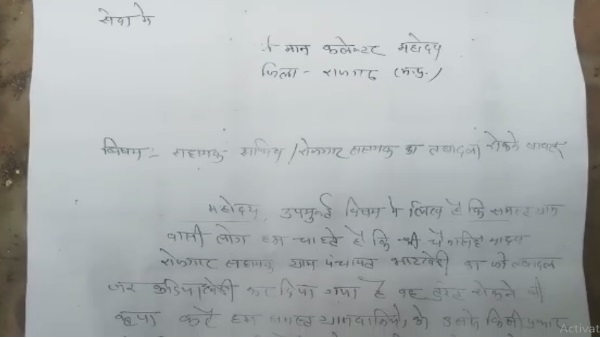 सेवा में
श्रीमान कलेक्टर महोदय
जिला - राजगढ़ (म.प्र.)
विषय:- सहायक सचिव / रोजगार सहायक का तबादला रोकने बाबत
महोदय, उपर्युक्त विषय में निवेदन है कि समस्त ग्राम
वासी लोग हम चाहते है कि श्री चैनसिंह यादव
रोजगार सहायक ग्राम पंचायत का जो तबादला
कर दिया गया है वह तुरंत रोकने की
कृपा करें हम समस्त ग्रामवासियो को उनसे किसी प्रकार
Activat